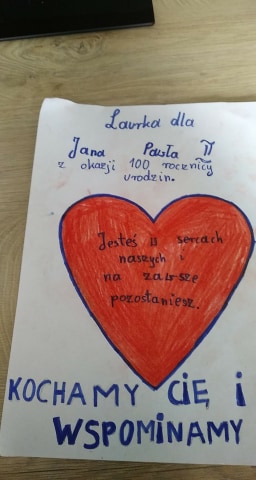 Laurka dla
Jana Pawła II
z okazji 100 rocznicy
urodzin.
Jesteś w sercach
naszych i
na zawsze
pozostaniesz.
KOCHAMY CIĘ i
WSPOMiNAMY